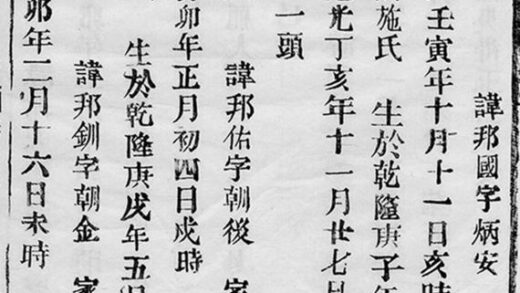 諱邦國字炳安
壬寅年十月十一日亥時
施氏 生於乾隆庚子年
光丁亥年十一月廿七日
一頭
諱邦佑字朝後 家
卯年正月初四日戌時
生於乾隆庚戌年五月
諱邦釧字朝金 家
卯年二月十六日未時